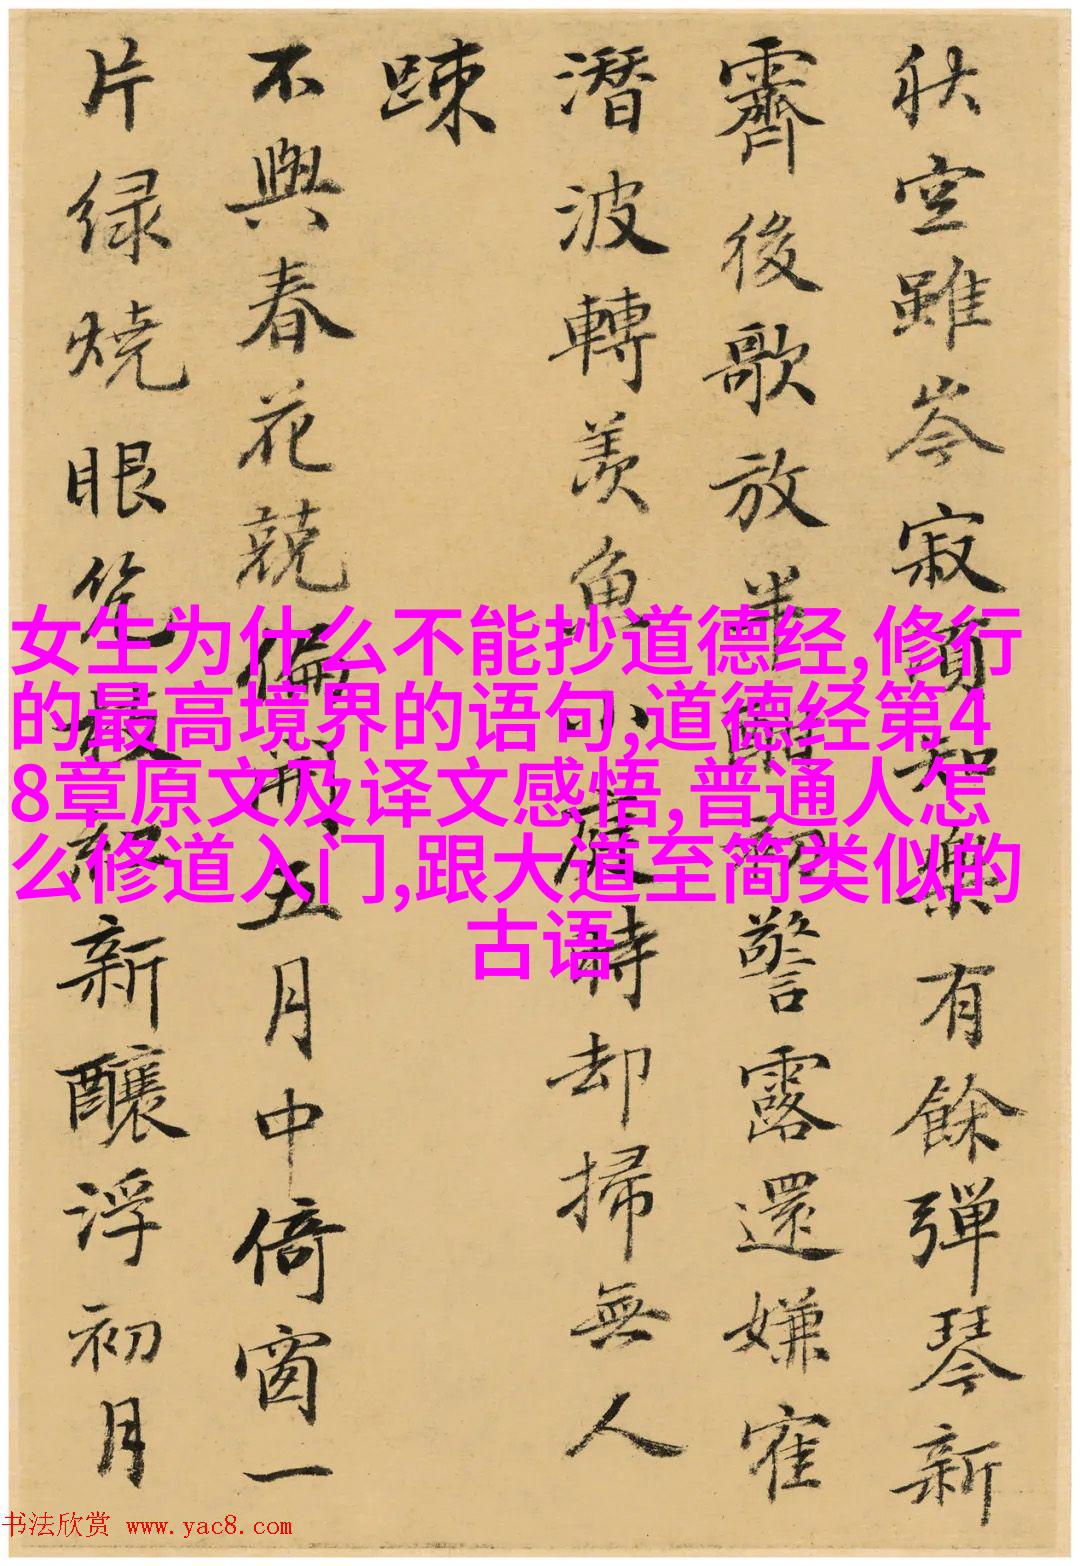 秋空雖岑寂知樂有餘彈琴新
霽後歌放半酣初警露還嫌寉
潛波轉羨魚小齋時却掃無人
踈
不與春花競偏開五月中倚窗一
片緑燒眼最紅新釀浮初月
女生为什么不能抄道德经,修行
的最高境界的语句,道德经第4
8章原文及译文感悟,普通人怎
么修道入门,跟大道至简类似的
古语
书法欣赏 www.yac8.com